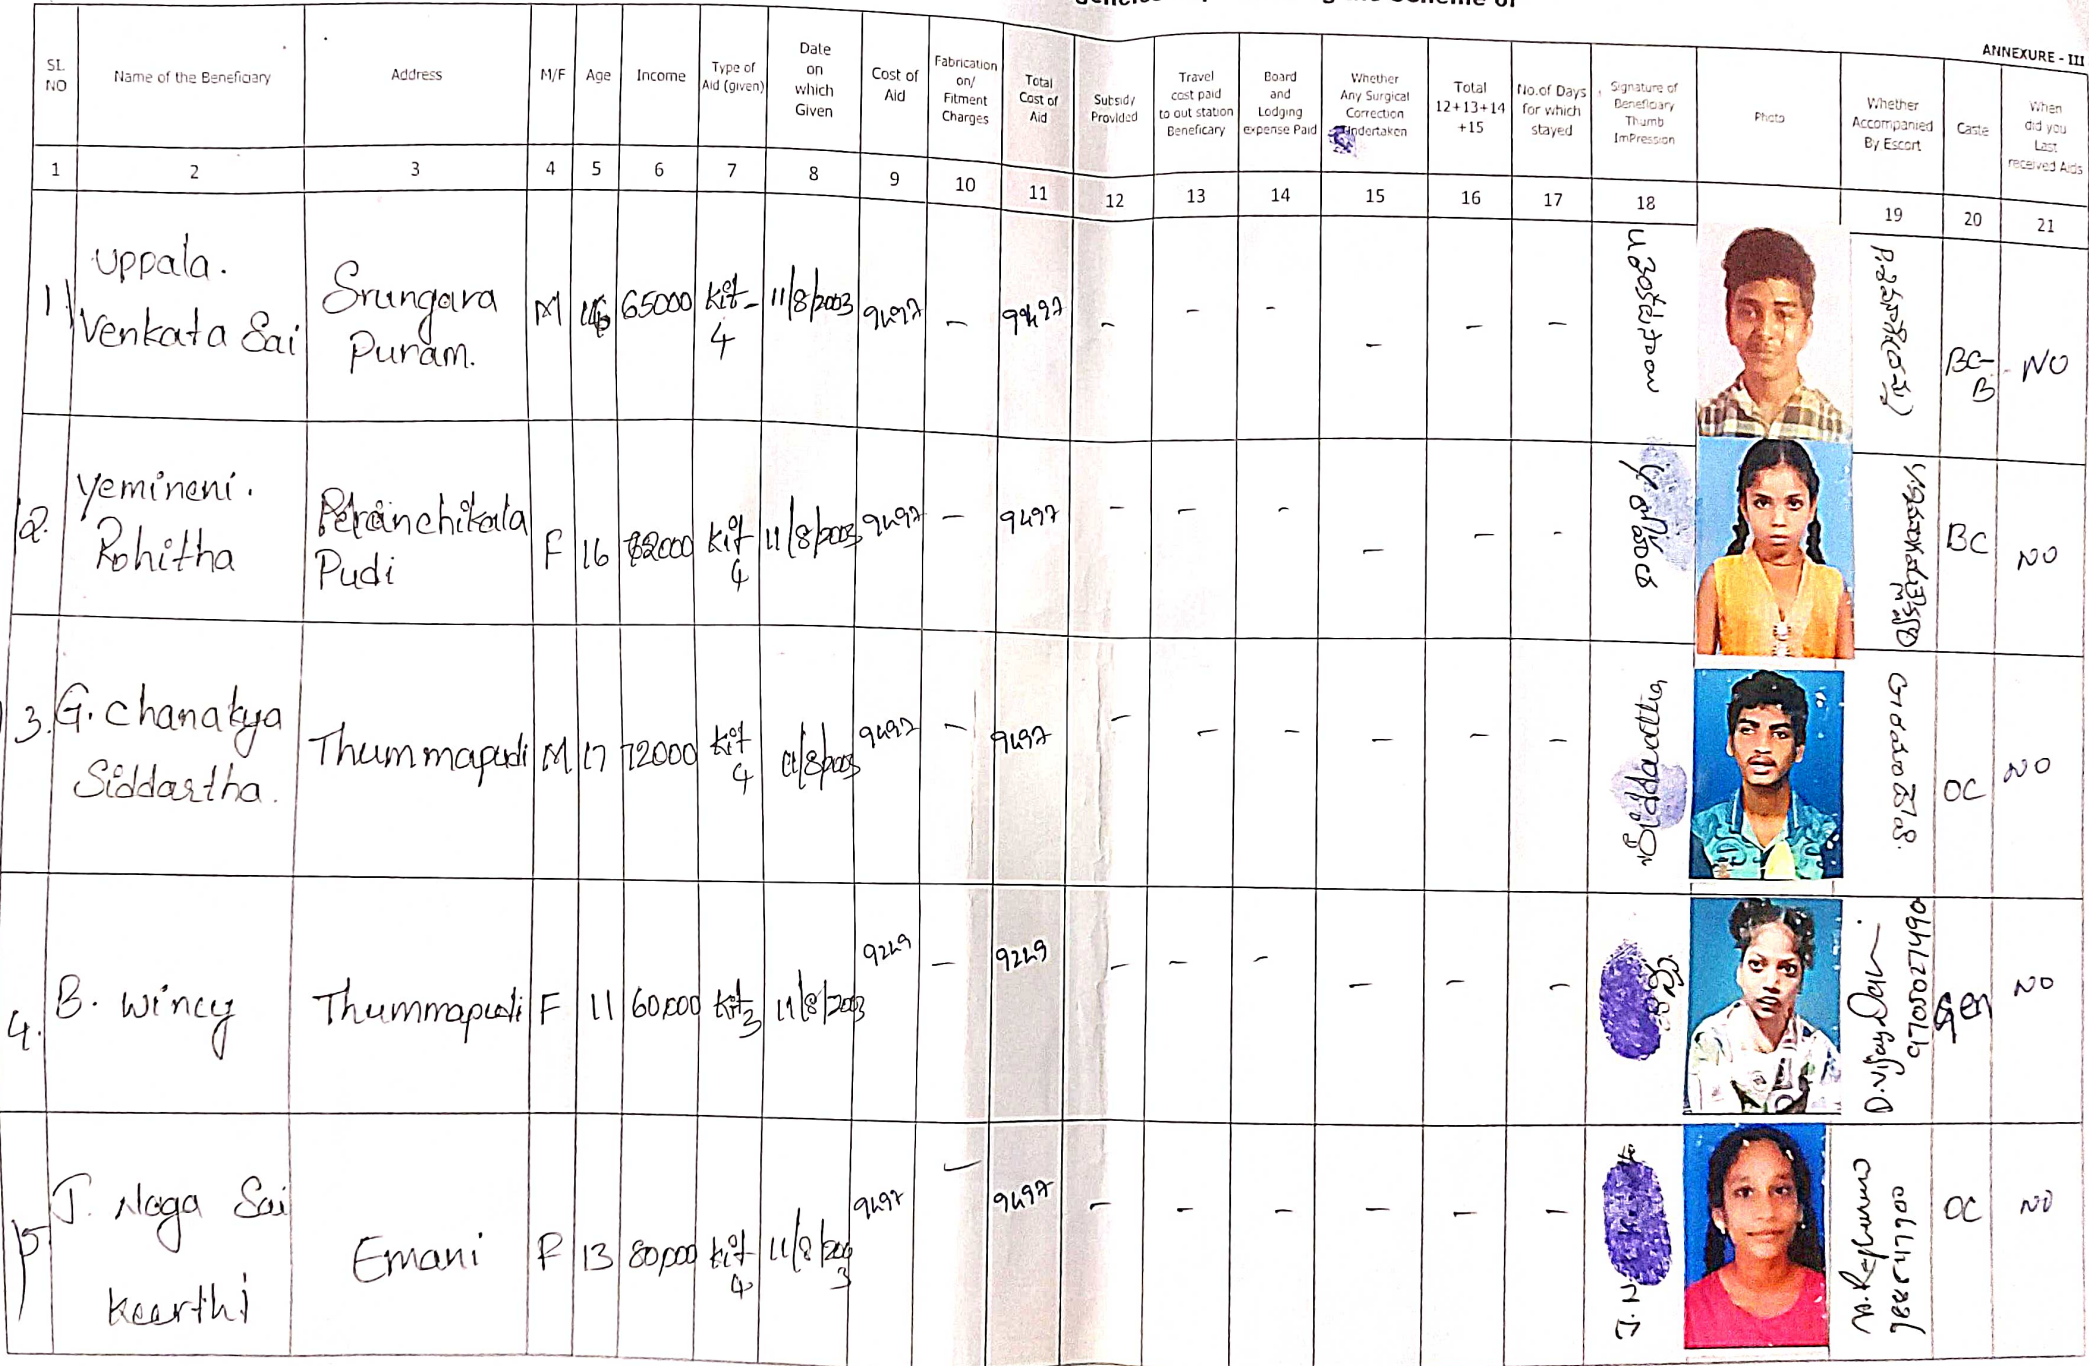 ANNEXURE - III
SI. NO
Name of the Beneficiary
Address
M/F
Age
Income
Type of
Aid (given)
Date
on
which
Given
Cost of
Aid
Fabrication
on/
Fitment
Charges
Total
Cost of
Aid
Subsidy
Provided
Travel
cost paid
to out station
Beneficary
Board
and
Lodging
expense Paid
Whether
Any Surgical
Correction
Undertaken
Total
12+13+14
+15
No.of Days
for which
stayed
Signature of
Beneficiary
Thumb
ImPression
Photo
Whether
Accompanied
By Escort
Caste
When
did you
Last
received Aids
1 2 3 4 5 6 7 8 9 10 11 12 13 14 15 16 17 18 19 20 21
1) Uppala.
Venkata Sai
Srungara
Puram.
M 16 65000 Kit-
4
11/8/2003 9497 - 9497 - - - - - -
BC-
B
NO
2. Yemineni.
Rohitha
Pudi
F 16 62000 Kit
4
11/8/2003 9497 - 9497 - - - - - -
BC NO
3. G. Chanakya
Siddartha.
Thummapudi M 17 72000 Kit
4
11/8/2003 9497 - 9497 - - - - - -
Siddartha
OC NO
4. B. Wincy
Thummapudi F 11 60,000 Kit
3
11/8/2003 9249 - 9249 - - - - - -
D. Vijay
9700502 7490
Gen NO
5 J. Naga Sai
Keerthi
Emani F 13 80,000 Kit
4
11/8/2003 9497 - 9497 - - - - - -
J. N
OC NO